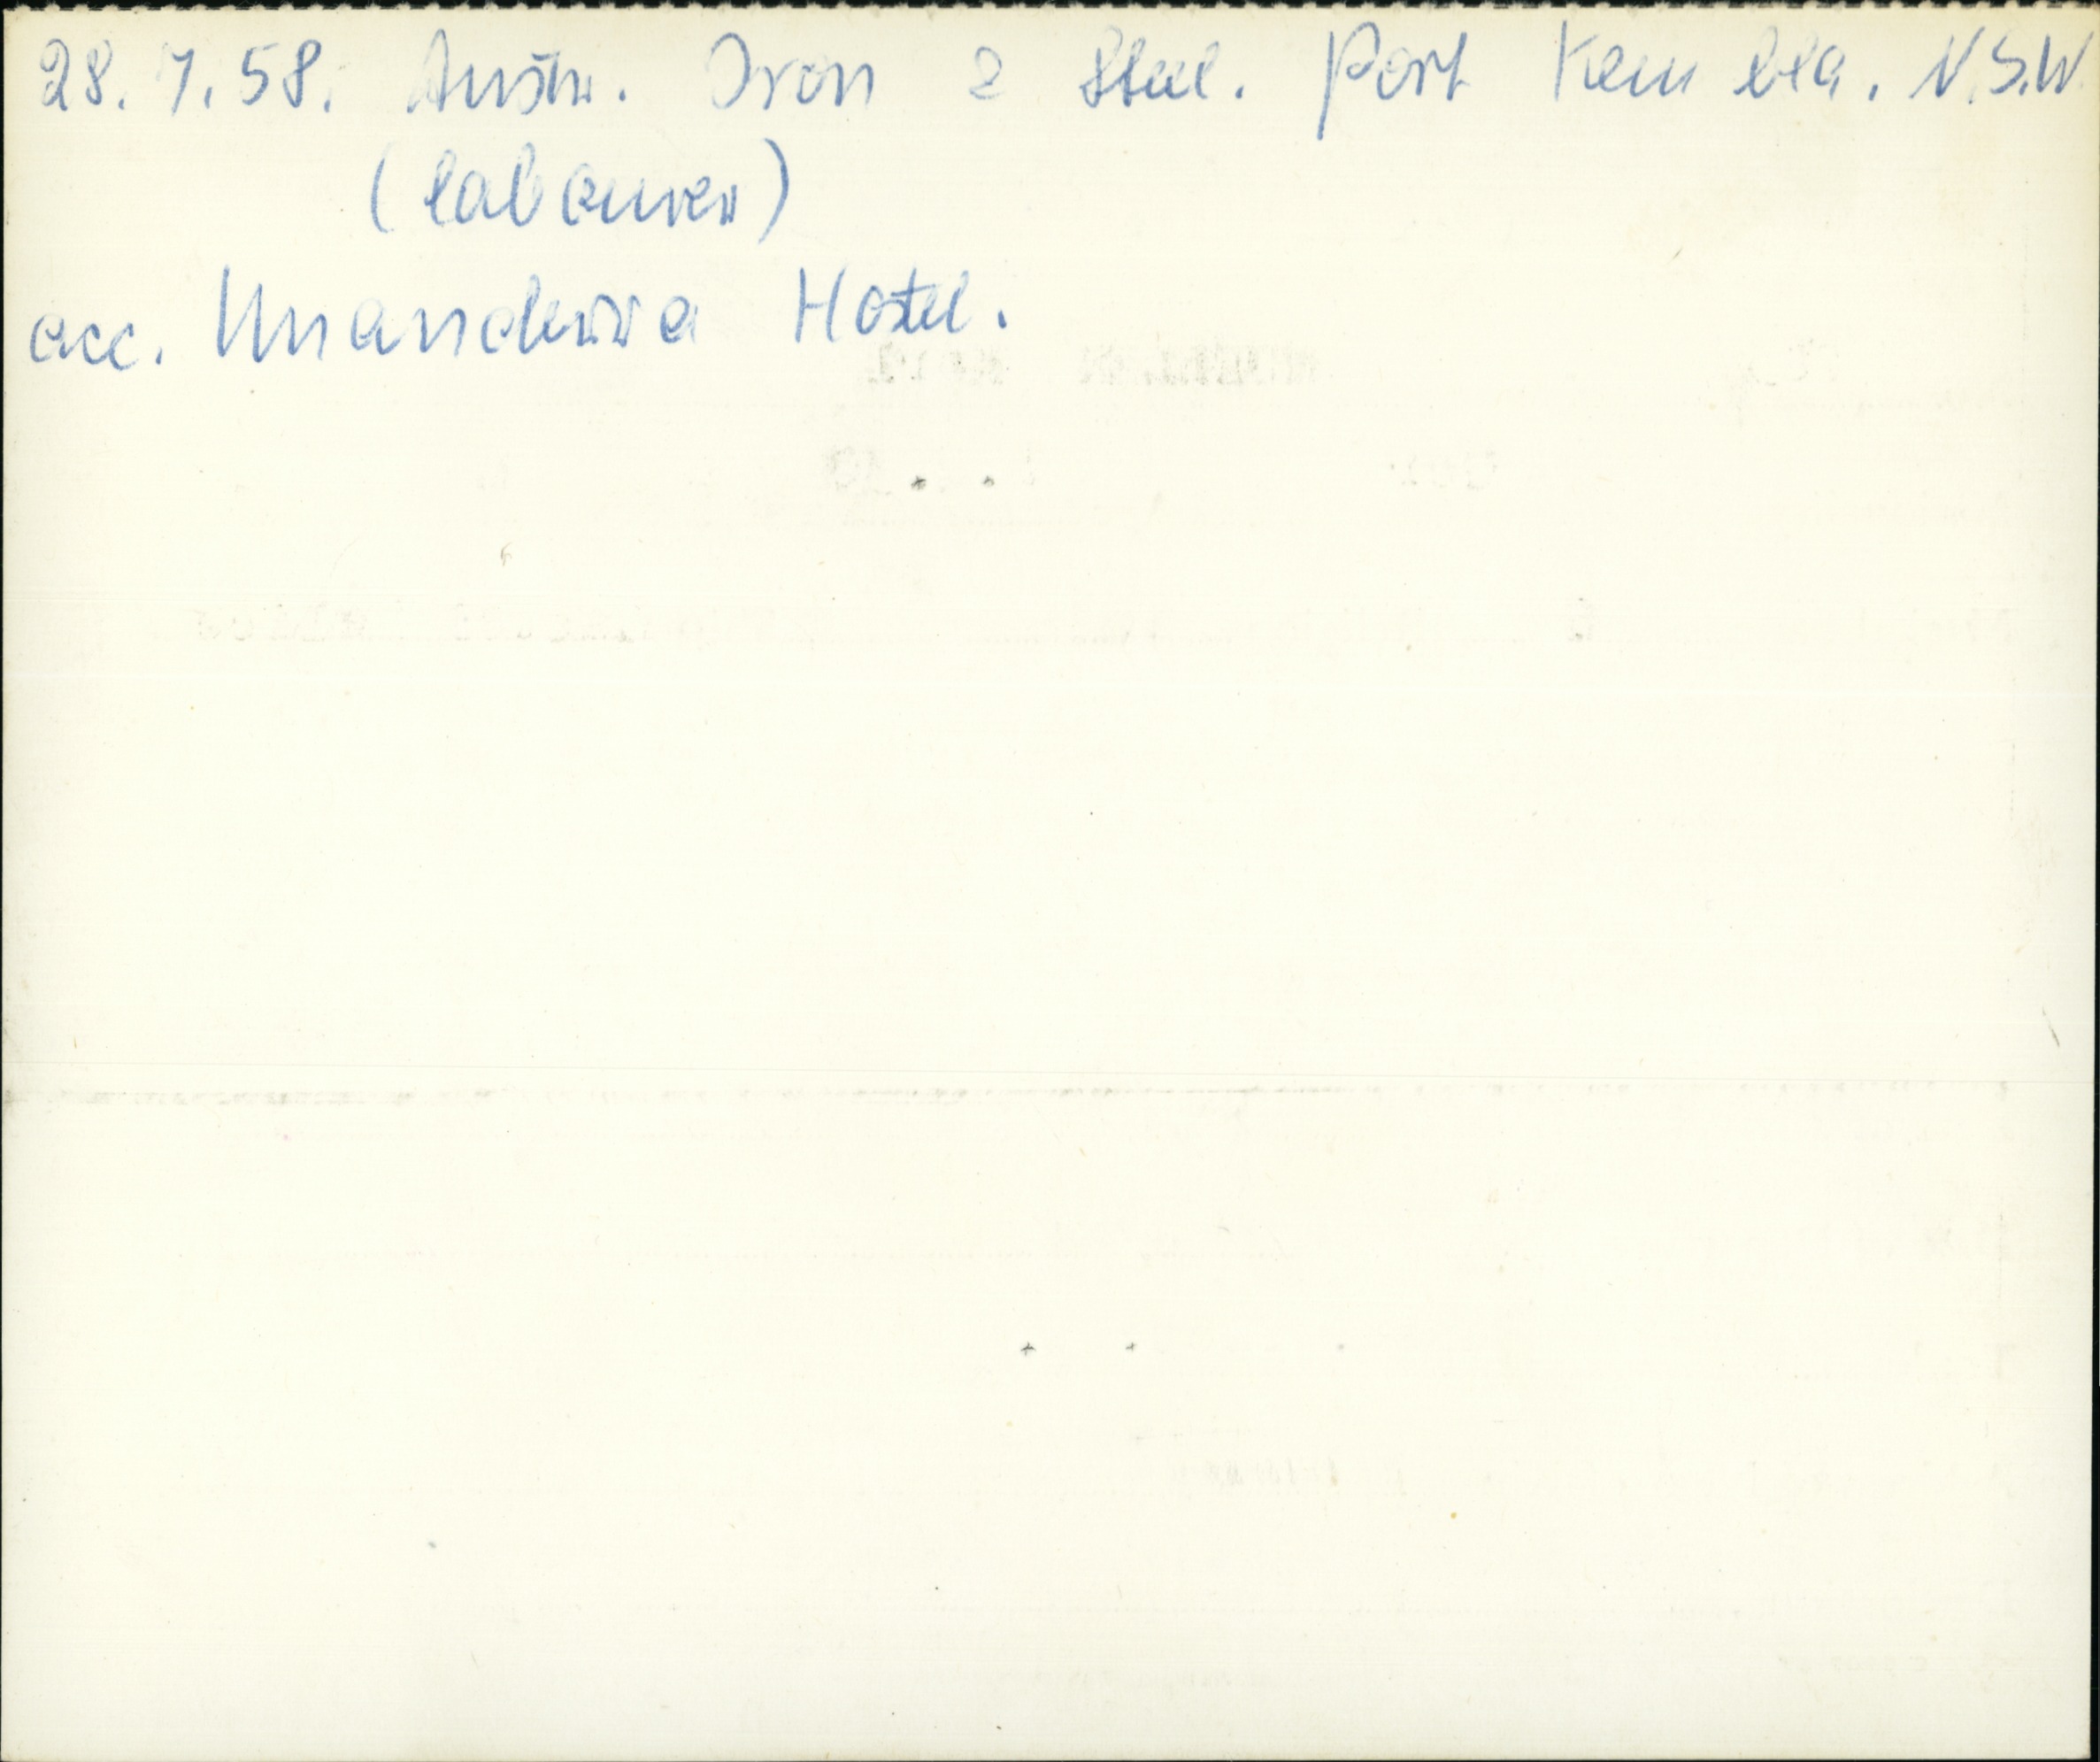 28.7.58. Austr. Iron & Steel. Port Kembla. N.S.W.
(labourer)
acc. Unanderra Hostel.